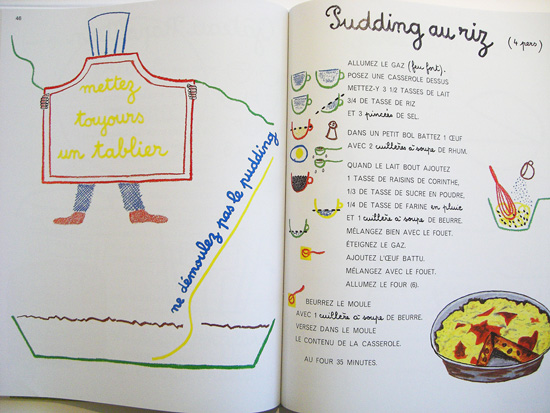 46
mettez
toujours
un tablier
ne démoulez pas le pudding
Pudding au riz (4 pers)
ALLUMEZ LE GAZ (feu fort).
POSEZ UNE CASSEROLE DESSUS
METTEZ-Y 3 1/2 TASSES DE LAIT
3/4 DE TASSE DE RIZ
ET 3 pincées DE SEL.
DANS UN PETIT BOL BATTEZ 1 ŒUF
AVEC 2 cuillères à soupe DE RHUM.
QUAND LE LAIT BOUT AJOUTEZ
1 TASSE DE RAISINS DE CORINTHE,
1/3 DE TASSE DE SUCRE EN POUDRE,
1/4 DE TASSE DE FARINE en pluie
ET 1 cuillère à soupe DE BEURRE.
MÉLANGEZ BIEN AVEC LE FOUET.
ÉTEIGNEZ LE GAZ.
AJOUTEZ L'ŒUF BATTU.
MÉLANGEZ AVEC LE FOUET.
ALLUMEZ LE FOUR (6).
BEURREZ LE MOULE
AVEC 1 cuillère à soupe DE BEURRE.
VERSEZ DANS LE MOULE
LE CONTENU DE LA CASSEROLE.
AU FOUR 35 MINUTES.